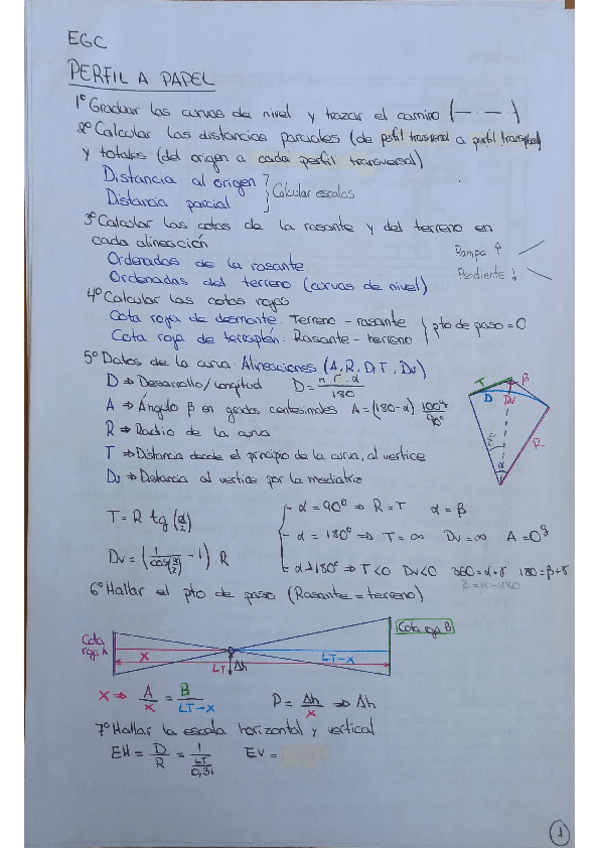 EGC
PERFIL A PAPEL
1º Graduar las curvas de nivel y trazar el camino (— · — · —)
2º Calcular las distancias parciales (de perfil trasversal a perfil transversal)
y totales (del origen a cada perfil transversal)
Distancia al origen
Distancia parcial
Calcular escalas
3º Calcular las cotas de la rasante y del terreno en
cada alineación
Rampa ↑
Ordenadas de la rasante
Pendiente ↓
Ordenadas del terreno (curvas de nivel)
4º Calcular las cotas rojas
Cota roja de desmonte: Terreno - rasante
Cota roja de terraplén: Rasante - terreno
pto de paso = 0
5º Datos de la curva: Alineaciones (A, R, D, T, Dv)
D ⇒ Desarrollo/Longitud D = π·r·α / 180
A ⇒ Ángulo β en grados centesimales A = (180-α) 100g / 90º
R ⇒ Radio de la curva
T ⇒ Distancia desde el principio de la curva, al vertice
Dv ⇒ Distancia al vertice por la mediatriz
T β
D Dv
R
α
T = R tg (α/2)
α = 90º ⇒ R = T α = β
α = 180º ⇒ T = ∞ Dv = ∞ A = 0g
Dv = (1/cos(α/2) - 1) R
α > 180º ⇒ T < 0 Dv < 0 360 = α + γ 180 = β + γ
β = α - 180
6º Hallar el pto de paso (Rasante = terreno)
Cota roja A
Cota roja B
X
LT-X
LT
Δh
X ⇒ A/X = B/LT-X
P = Δh/X ⇒ Δh
7º Hallar la escala horizontal y vertical
EH = D/R = 1 / LT/0,31
EV =
1